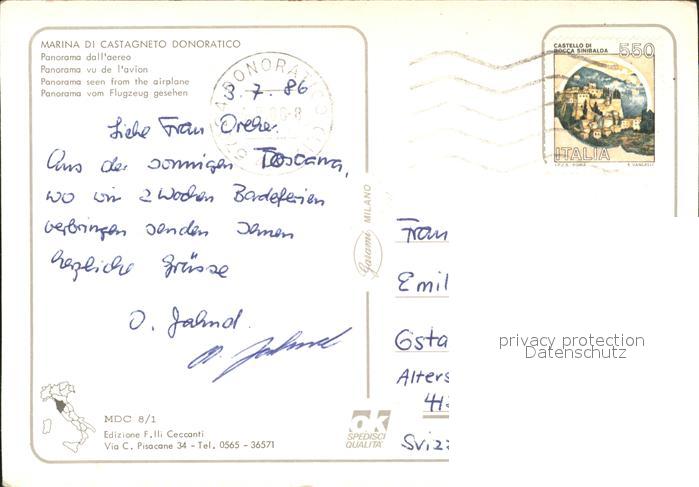 MARINA DI CASTAGNETO DONORATICO
Panorama dall'aereo
Panorama vu de l'avion
Panorama seen from the airplane
Panorama vom Flugzeug gesehen
DONORATICO
3.7.86
Liebe Frau
Aus der sonnigen Toscana,
wo wir 2 Wochen Badeferien
verbringen senden Ihnen
herzliche Grüsse
O. Jahnd.
MDC 8/1
Edizione F.lli Ceccanti
Via C. Pisacane 34 - Tel. 0565 - 36571
Garami MILANO
ok
SPEDISCI
QUALITA'
CASTELLO DI
ROCCA SINIBALDA
550
ITALIA
I.P.Z.S. ROMA E. VANGELLI
Frau
Emil
Gsta
Alters
41
Sviz
privacy protection
Datenschutz